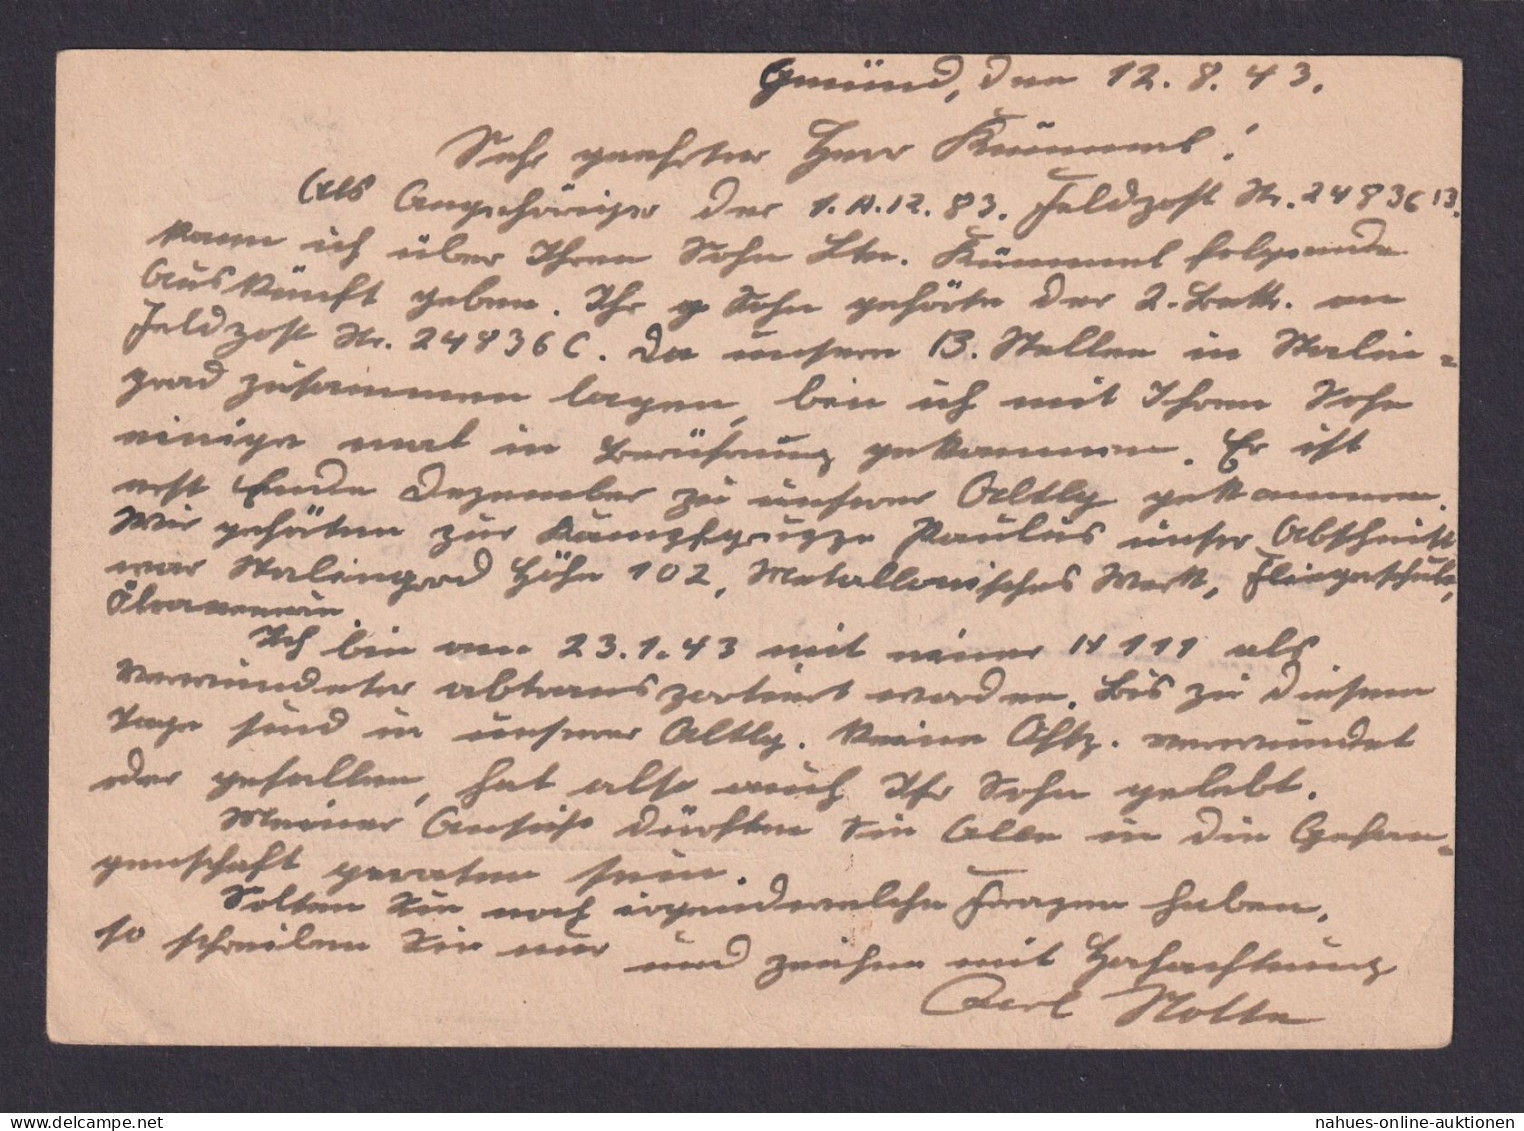 Gmünd, den 12.8.43.
Sehr geehrter Herr Kümmel!
Als Angehöriger der 1. A.R. 83. Feldpost Nr. 24836 B.
kann ich über Ihren Sohn Ltn. Kümmel folgende
Auskünft geben. Ihr Sohn gehörte der 2. Batt. an
Feldpost Nr. 24836 C. Da unsere B. Stellen in Stalin=
grad zusammen lagen, bin ich mit Ihren Sohn
einige mal in Berührung gekommen. Er ist
erst Ende Dezember zu unserer Abtlg. gekommen.
Wir gehörten zur Kampfgruppe Paulus unser Abschnitt
war Stalingrad Höhe 102, Metallonisches Werk, Fliegerschule,
Ich bin am 23.1.43 mit einer H 111 als
Verwundeter abtransportiert worden. Bis zu diesem
Tage sind in unserer Abtlg. keine Offz. verwundet
oder gefallen, hat also auch Ihr Sohn gelebt.
Meiner Ansicht dürften Sie Alle in die Gefan=
genschaft geraten sein.
Sollten Sie noch irgendwelche Fragen haben,
so schreiben Sie nur und zeichne mit Hochachtung
Carl Nolte
nahues-online-auktionen